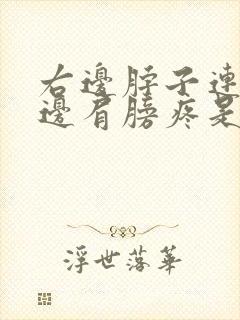 右邊脖子連
邊肩膀疼是
浮世落華